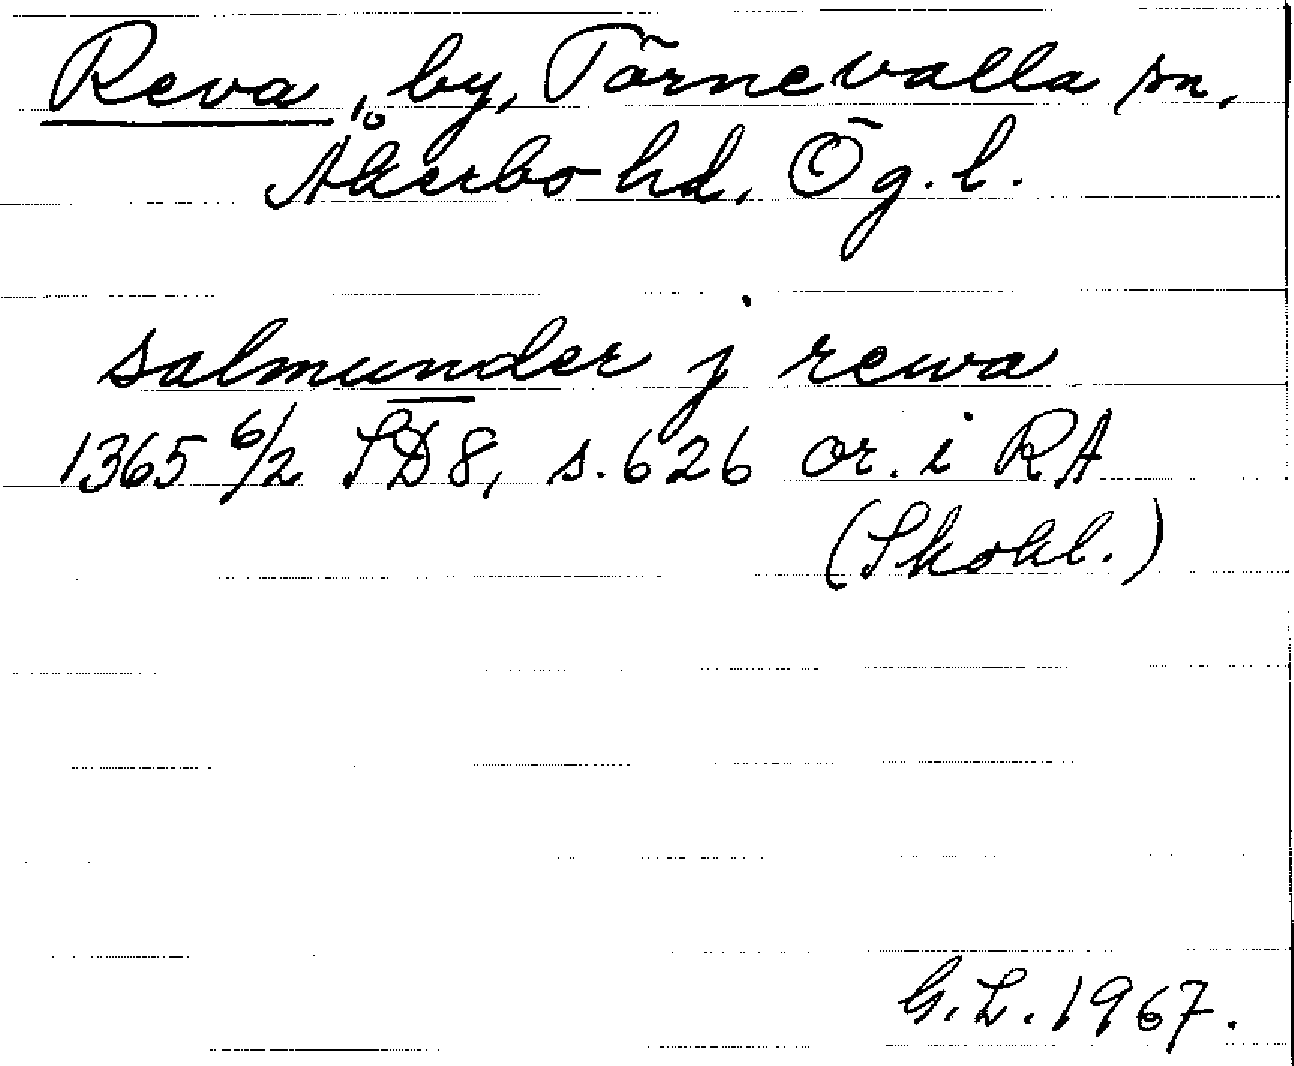 Reva, by, Törnevalla sn,
Åkerbo hd, Ög. l.
salmunder j rewa
1365 6/2 SD 8, s. 626 or. i RA
(Skokl.)
G. L. 1967.